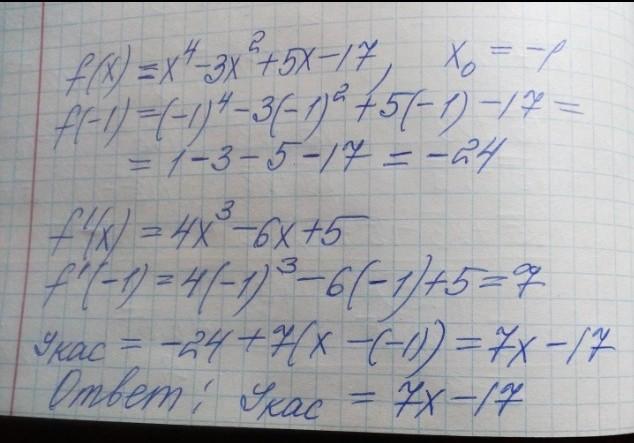 f(x) = x⁴ - 3x² + 5x - 17, x₀ = -1
f(-1) = (-1)⁴ - 3(-1)² + 5(-1) - 17 =
= 1 - 3 - 5 - 17 = -24
f'(x) = 4x³ - 6x + 5
f'(-1) = 4(-1)³ - 6(-1) + 5 = 7
Yкас = -24 + 7(x - (-1)) = 7x - 17
Ответ: Yкас = 7x - 17